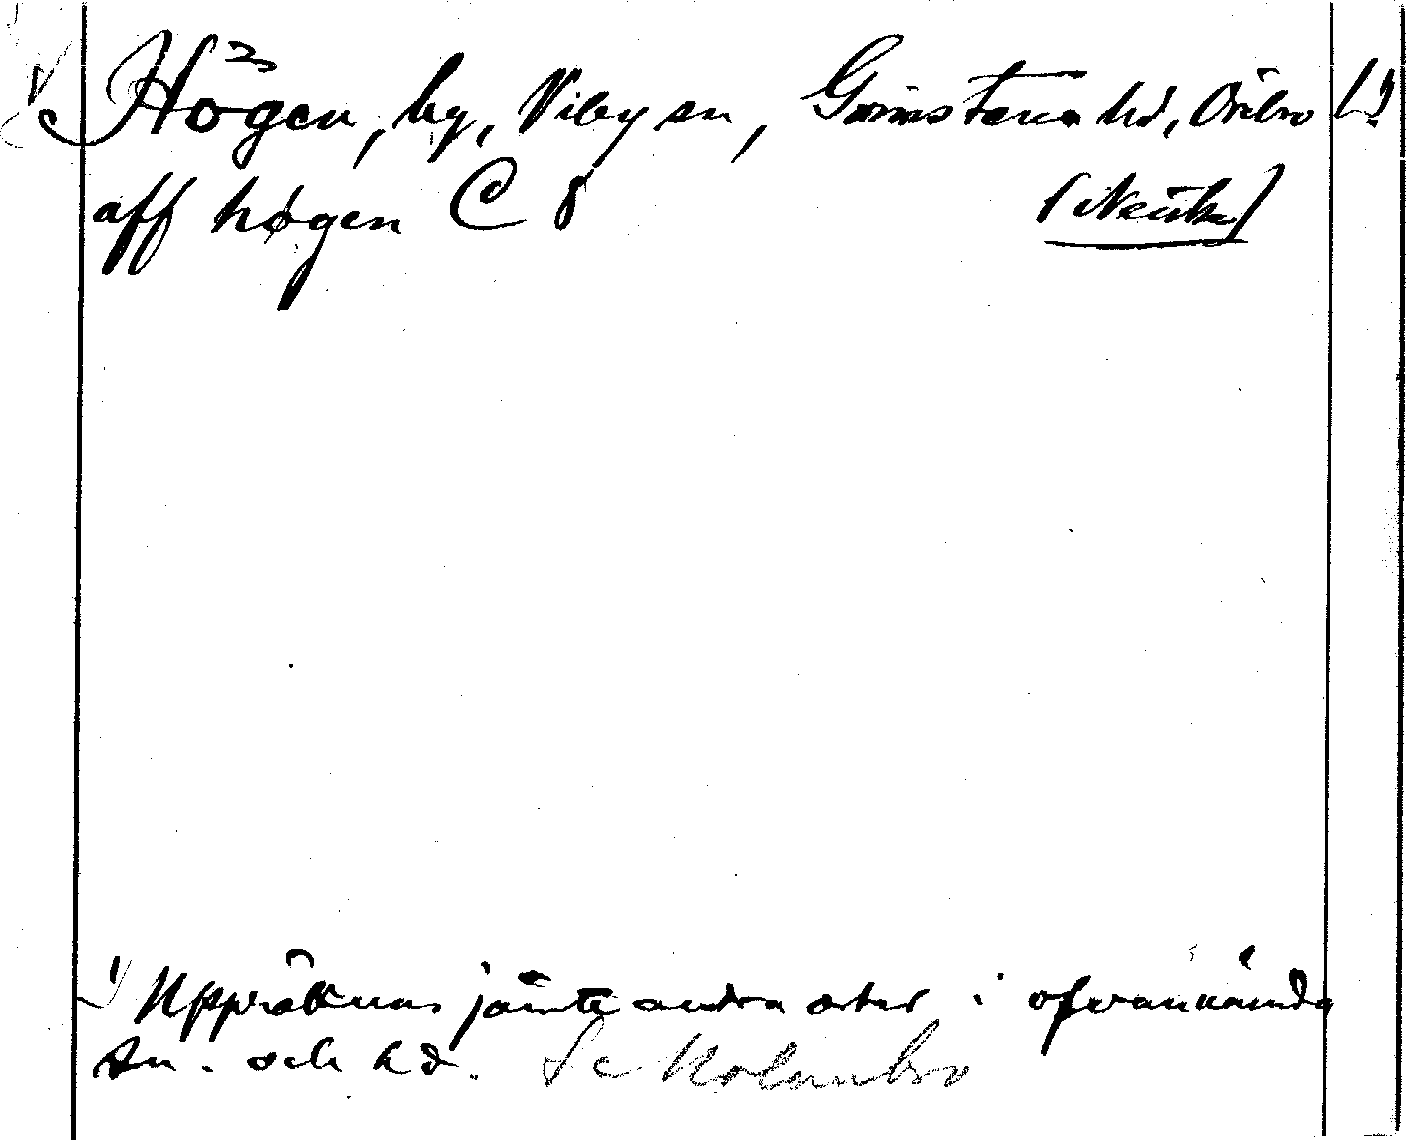 Högen, by, Viby sn, Grimstena hd, Örebro l.
aff høgen C 8 (Nerike)
1) Uppräknas jämte andra orter i ofvannämnda
sn. och hd. Se Kolanbro